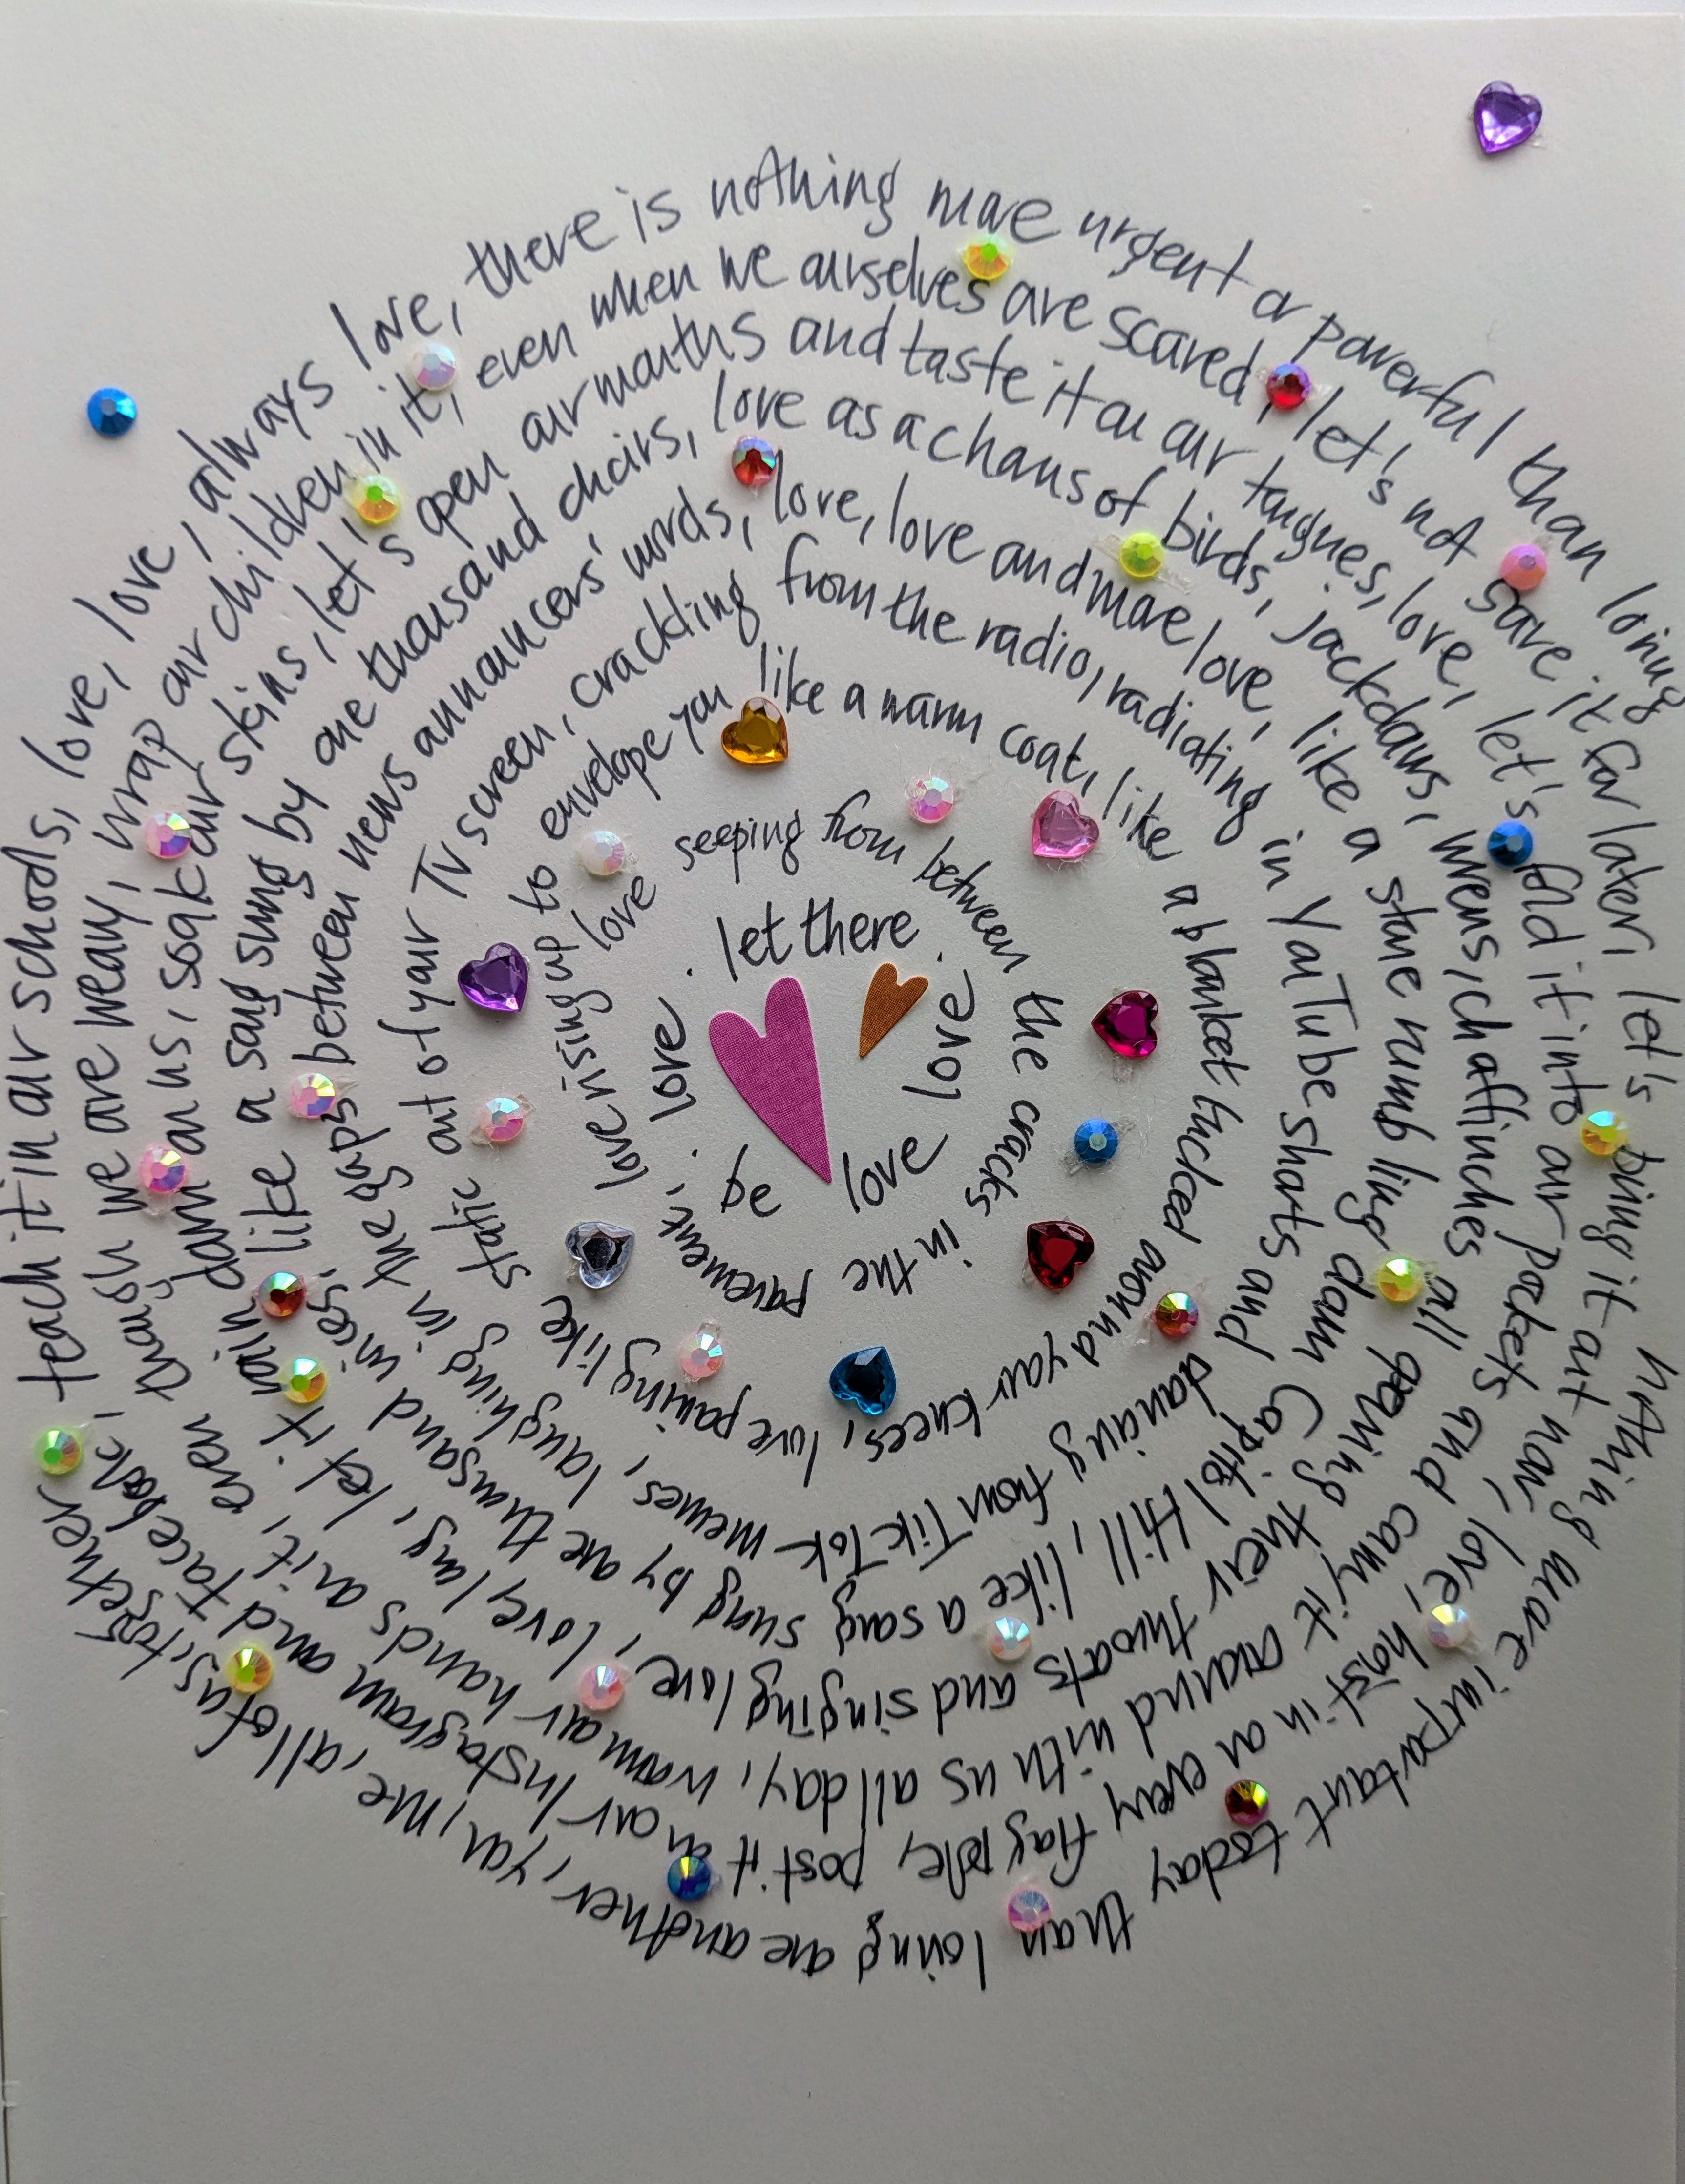 let there
be
love.
love
love
love seeping from between the cracks in the pavement,
love rising up to envelope you like a warm coat, like a blanket tucked around your knees, love pouring like
static out of your TV screen, crackling from the radio, radiating in YouTube shorts and dancing from TikTok memes, laughing in
the gaps between news announcers' words, love, love and more love, like a stone rumbling down Capitol Hill, like a song sung by one thousand voices,
like a song sung by one thousand chairs, love as a chorus of birds, jackdaws, wrens, chaffinches all opening their throats and singing love, love, long, let it
rain down on us, soak our skins, let's open our mouths and taste it on our tongues, love, let's fold it into our pockets and carry it around with us all day, warm our hands on it, even
though we are weary, wrap our children in it, even when we ourselves are scared, let's not save it for later, let's bring it out now, love, hoist in on every flagpole, post it on our Instagram and Facebook,
teach it in our schools, love, love, always love, there is nothing more urgent or powerful than loving nothing more important today than loving one another, you, me, all of us, together